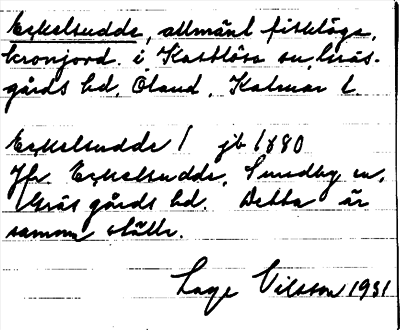 Eckelsudde, allmänt fiskläge,
kronjord. i Kastlösa sn, Gräs-
gårds hd, Öland, Kalmar l.
Eckelsudde / jb 1880
Jfr Eckelsudde, Smedby sn,
Gräsgårds hd. Detta är
samma ställe.
Lage Nilsson 1931